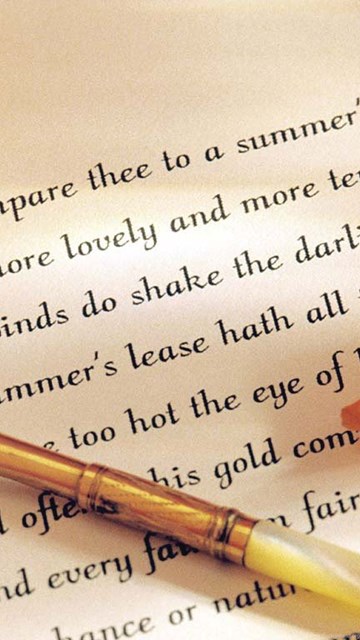 mpare thee to a summer'
ore lovely and more te
inds do shake the darli
mmer's lease hath all
e too hot the eye of
ofte his gold com
nd every fa fair
hance or natu